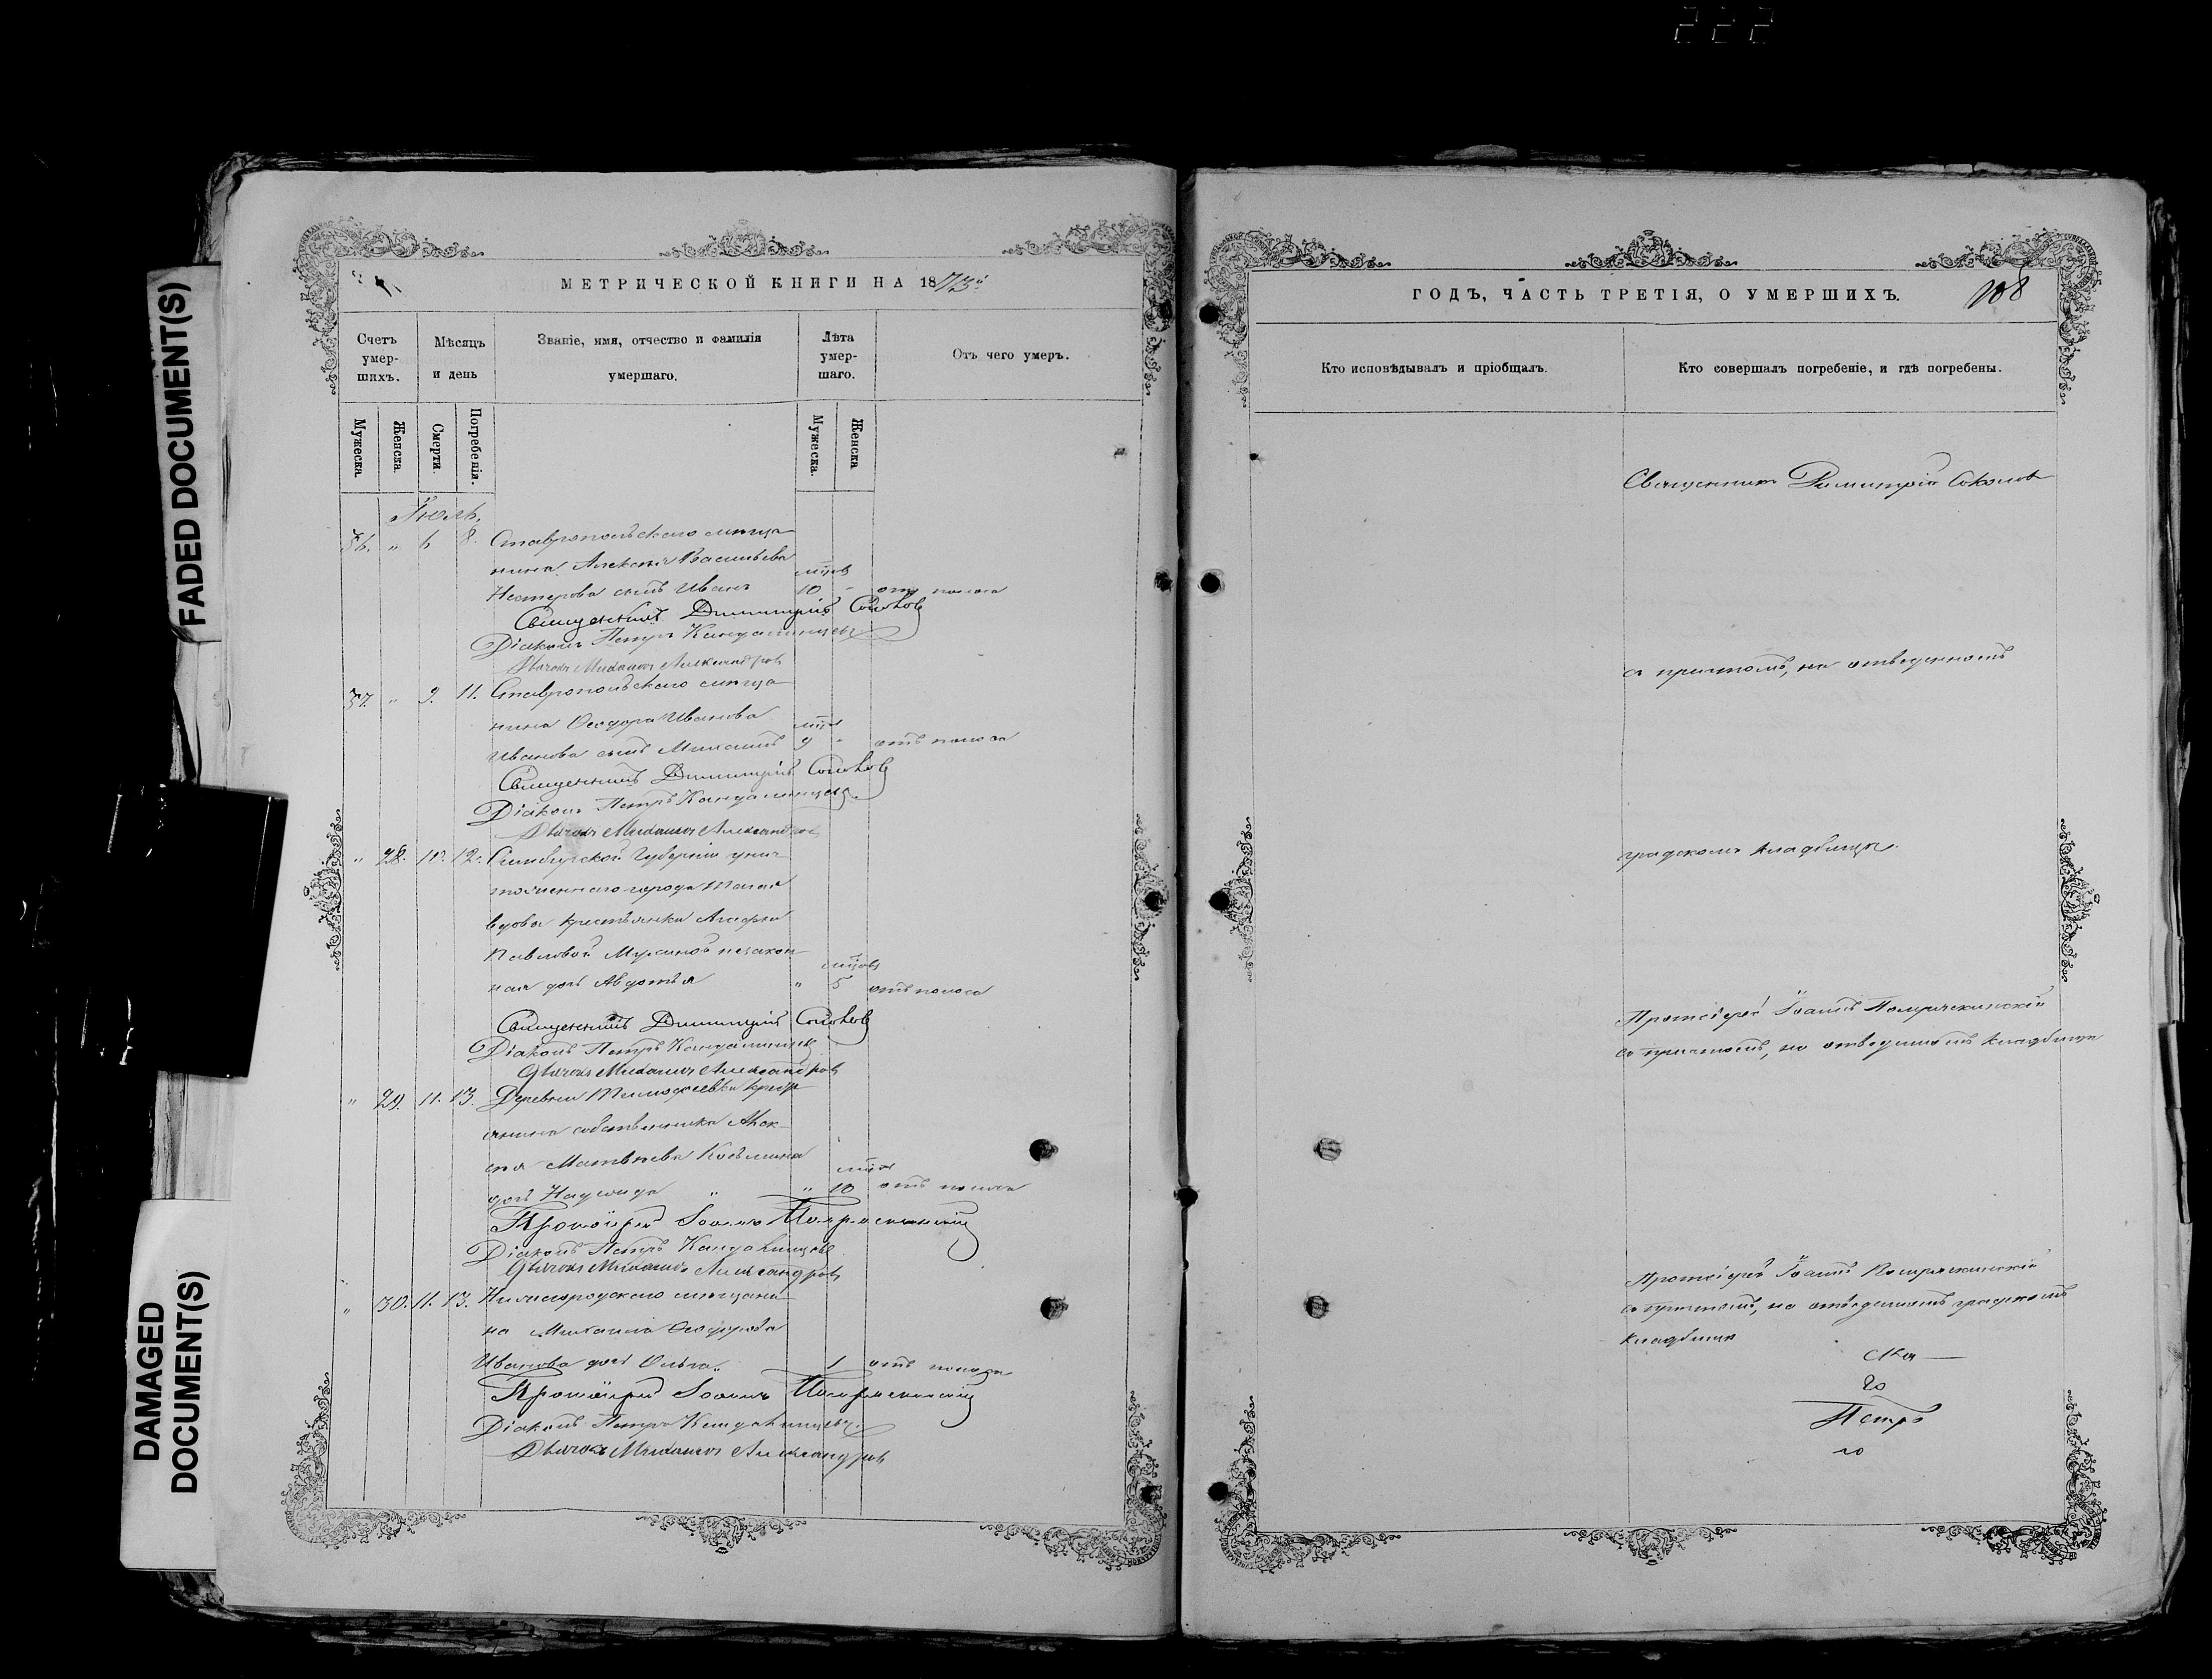 222
FADED DOCUMENT(S)
DAMAGED
DOCUMENT(S)
МЕТРИЧЕСКОЙ КНИГИ НА 1873
Счетъ умер-шихъ.
Мѣсяцъ и день
Званіе, имя, отчество и фамилія умершаго.
Лѣта умер-шаго.
Отъ чего умеръ.
Мужеска.
Женска.
Смерти.
Погребенія.
Мужеска.
Женска
Іюль.
36. " 6 8. Ставропольскаго мѣща-
нина Алексѣя Васильева мцовъ
Нестерова сынъ Иванъ 10 " отъ поноса
Священникъ Димитрій Соколовъ
Діаконъ Петръ
Дьячокъ Михаилъ Александровъ
37. " 9. 11. Ставропольскаго мѣща-
нина Ѳеодора Иванова мцовъ
Иванова сынъ Михаилъ 9 " отъ поноса
Священникъ Димитрій Соколовъ
Діаконъ Петръ
Дьячокъ Михаилъ Александровъ
" 28. 10. 12. Симбирской Губерніи унич-
тоженнаго города Тагая
вдовы крестьянки Агафьи
Павловой незакон- мцовъ
ная дочь Авдотья " 5 отъ поноса
Священникъ Димитрій Соколовъ
Діаконъ Петръ
Дьячокъ Михаилъ Александровъ
" 29. 11. 13. Деревни Тимофеевки кресть-
янина собственника Алек-
сѣя Матвѣева мцовъ
дочь Надежда " " 10 отъ поноса
Протоіерей Іоаннъ
Діаконъ Петръ
Дьячокъ Михаилъ Александровъ
" 30. 11. 13. Нижегородскаго мѣщани-
на Михаила Ѳеодорова
Иванова дочь Ольга. 1 отъ поноса
Протоіерей Іоаннъ
Діаконъ Петръ
Дьячокъ Михаилъ Александровъ
ГОДЪ, ЧАСТЬ ТРЕТІЯ, О УМЕРШИХЪ.
108
Кто исповѣдывалъ и пріобщалъ.
Кто совершалъ погребеніе, и гдѣ погребены.
Священникъ Димитрій Соколовъ
съ причтомъ, на отведенномъ
градскомъ кладбищѣ.
Протоіерей Іоаннъ
съ причтомъ, на отведенномъ кладбищѣ
Протоіерей Іоаннъ
съ причтомъ, на отведенномъ градскомъ
кладбищѣ
го
Петръ